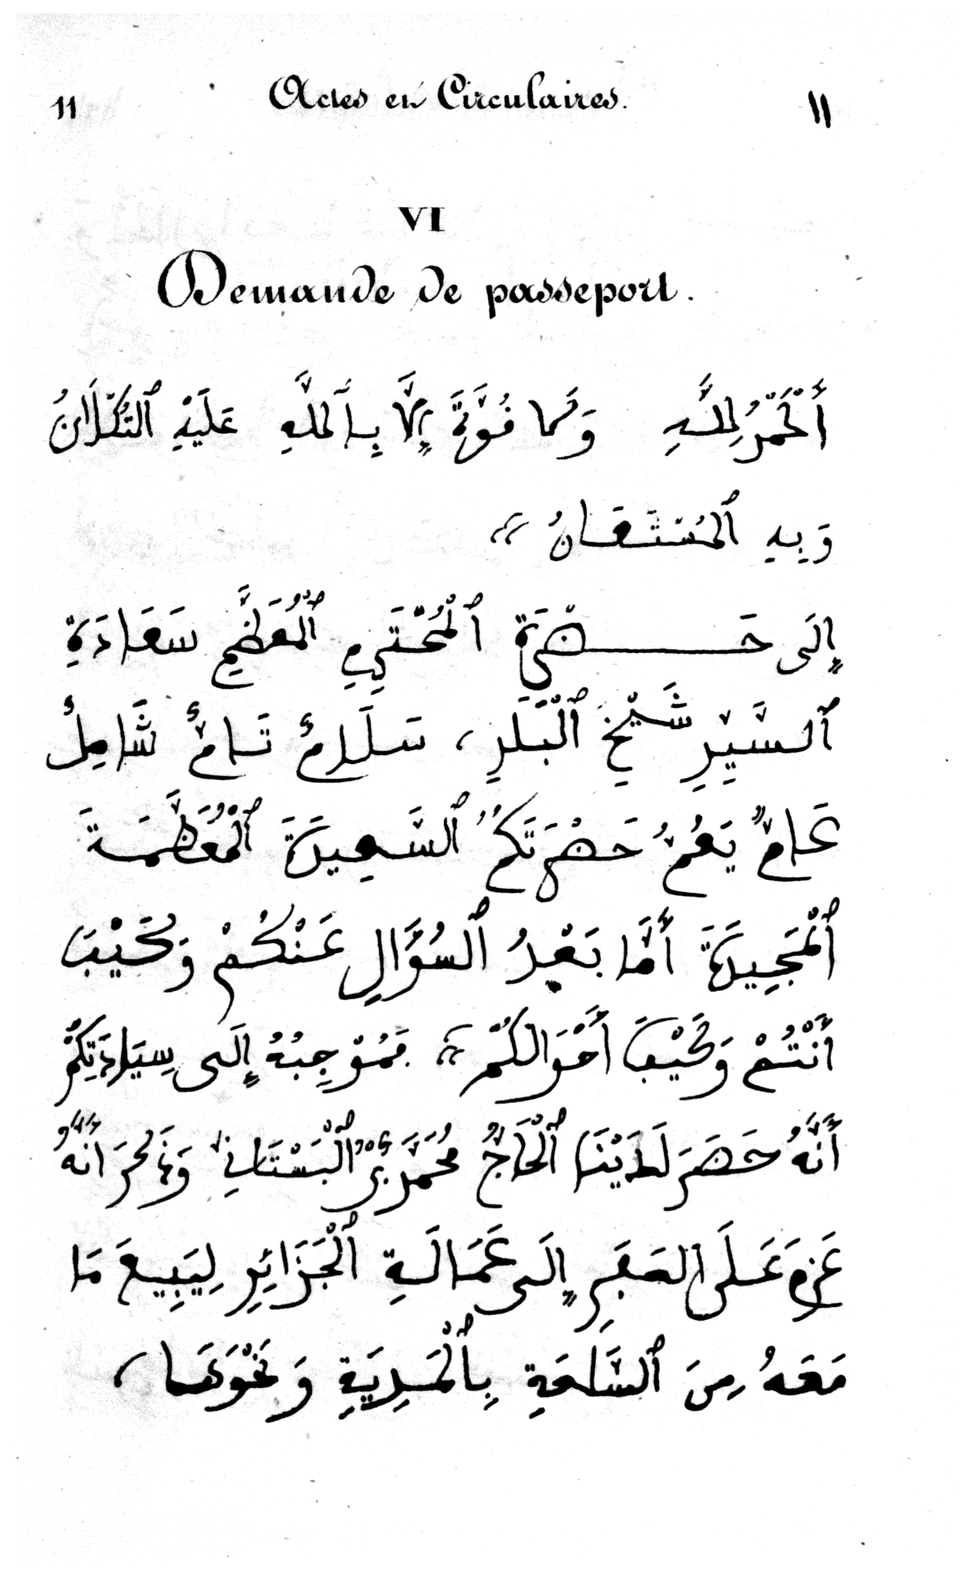 11 Actes et Circulaires. 11
VI
Demande de passeport.
أَلْحَمْدُ لِلَّهِ وَلَا قُوَّةَ إِلَّا بِٱللَّهِ عَلَيْهِ ٱلتُّكْلَانُ
وَبِهِ ٱلْمُسْتَعَانُ
إِلَى حَضْرَةِ ٱلْمُحْتَرَمِ ٱلْمُعَظَّمِ سَعَادَةِ
ٱلسَّيِّدِ شَيْخِ ٱلْبَلَدِ، سَلَامٌ تَامٌّ شَامِلٌ
عَامٌّ يَعُمُّ حَضْرَتَكُمُ ٱلسَّعِيدَةَ ٱلْمُعَظَّمَةَ
ٱلْمَجِيدَةَ أَمَّا بَعْدُ ٱلسُّؤَالِ عَنْكُمْ وَكَيْفَ
أَنْتُمْ وَكَيْفَ أَحْوَالُكُمْ، فَمُوْجِبُهُ إِلَى سِيَادَتِكُمْ
أَنَّهُ حَضَرَ لَدَيْنَا ٱلْحَاجُّ مُحَمَّدُ بْنُ ٱلْبَسْتَانِي وَذَكَرَ أَنَّهُ
عَزَمَ عَلَى ٱلسَّفَرِ إِلَى عَمَالَةِ ٱلْجَزَائِرِ لِيَبِيعَ مَا
مَعَهُ مِنَ ٱلسَّلْعَةِ بِٱلْمَدِيَةِ وَنَحْوَهَا،